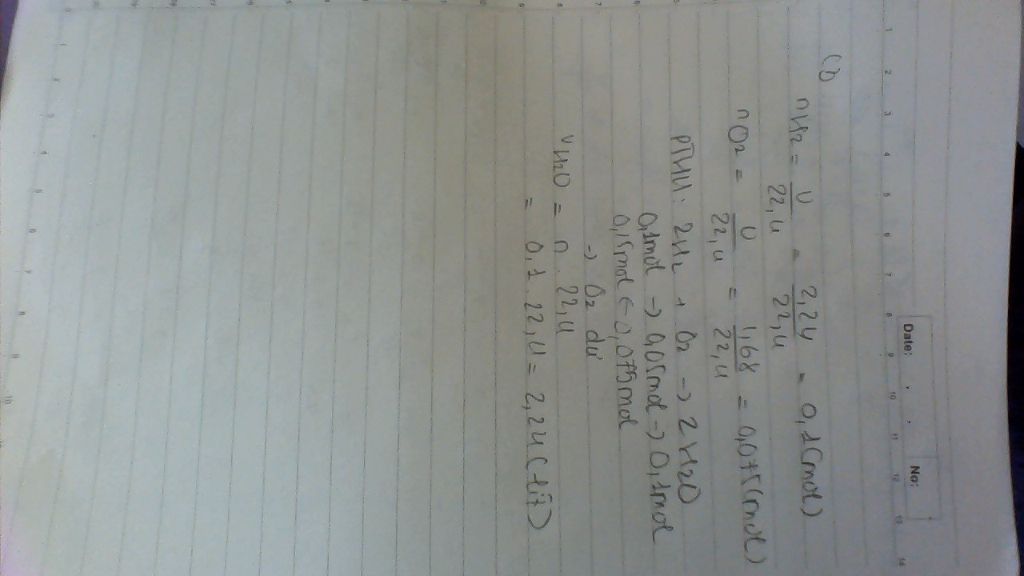 Date: No:
(1)
nH2 = V/22,4 = 2,24/22,4 = 0,1 (mol)
nO2 = V/22,4 = 1,68/22,4 = 0,075 (mol)
PTHH: 2H2 + O2 -> 2H2O
0,1mol -> 0,05mol -> 0,1mol
0,15mol <- 0,075mol
-> O2 dư
VH2O = n . 22,4
= 0,1 . 22,4 = 2,24 (lít)